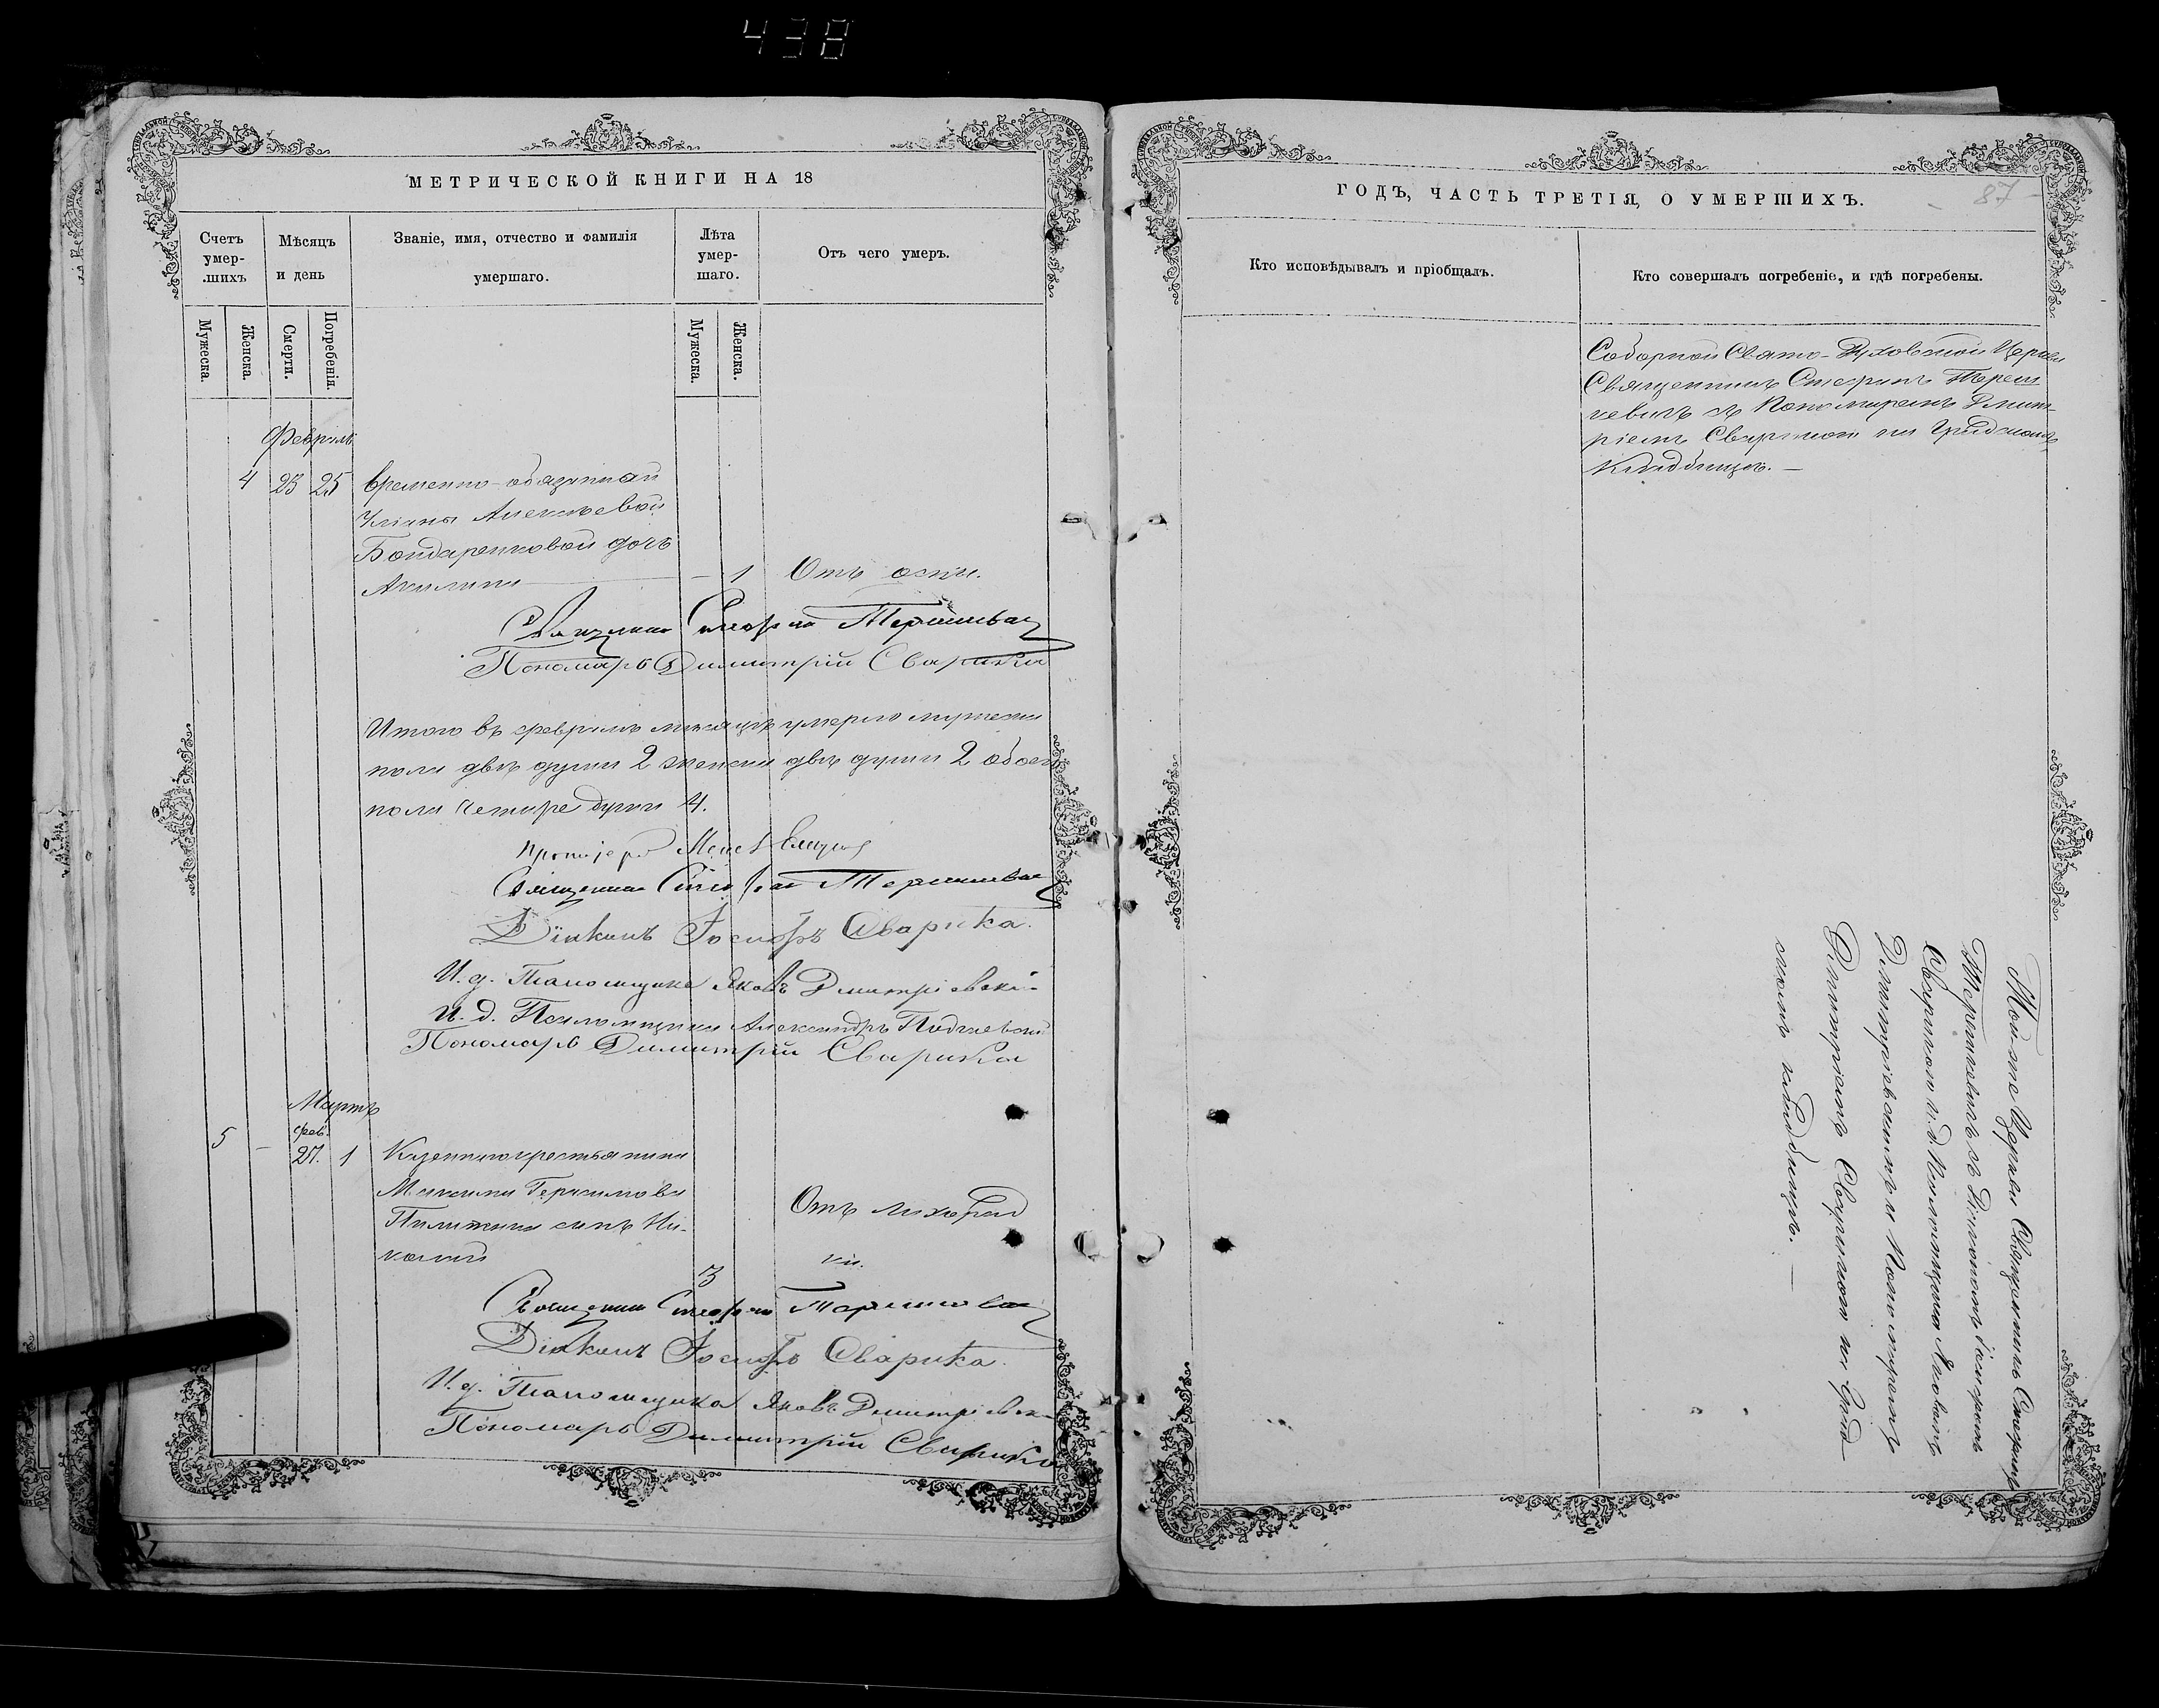 438
МЕТРИЧЕСКОЙ КНИГИ НА 18
Счетъ умер-шихъ
Мѣсяцъ и день
Званіе, имя, отчество и фамилія умершаго.
Лѣта умер-шаго.
Отъ чего умеръ.
Мужеска.
Женска.
Смерти.
Погребенія.
Мужеска.
Женска.
Февраль
4 23 25 временно-обязанной
Уліаны Алексѣевой
Бондаренковой дочь
Акилина — 1 Отъ оспы.
Священникъ Стефанъ
Пономарь Димитрій Сварика
Итого въ февралѣ мѣсяцѣ умерло мужеска
пола двѣ души 2 женска двѣ души 2 обоего
пола четыре души 4.
Протоіерей
Священникъ Стефанъ
Діаконъ Іосифъ Сварика.
И. д. Псаломщика Яковъ Дмитріевскій
И. д. Псаломщика Александръ
Пономарь Димитрій Сварика
Мартъ
фев.
5 — 27. 1 Казеннаго крестьянина
Максима Герасимова
сынъ Ни-
колай 3
Отъ лихорад
ки.
Священникъ Стефанъ
Діаконъ Іосифъ Сварика.
И. д. Псаломщика Яковъ Дмитріевскій
Пономарь Димитрій Сварика
ГОДЪ, ЧАСТЬ ТРЕТІЯ, О УМЕРШИХЪ.
87
Кто исповѣдывалъ и пріобщалъ.
Кто совершалъ погребеніе, и гдѣ погребены.
Соборной Свято-Духовской Церкви
Священникъ Стефанъ Тереш
кевичъ съ Пономаремъ Дмит-
ріемъ Сварикою на
кладбищѣ. —
Той-же Церкви Священникъ Стефанъ
Терешкевичъ съ Діакономъ Іосифомъ
Сварикою и. д. Псаломщика Яковомъ
Дмитріевскимъ и Пономаремъ
Димитріемъ Сварикою на
кладбищѣ. —